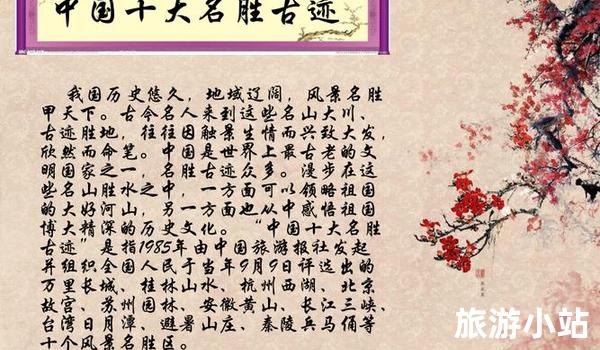 中国十大名胜古迹
我国历史悠久，地域辽阔，风景名胜
甲天下。古今名人来到这些名山大川、
古迹胜地，往往因触景生情而兴致大发，
欣然而命笔。中国是世界上最古老的文
明国家之一，名胜古迹众多。漫步在这
些名山胜水之中，一方面可以领略祖国
的大好河山，另一方面也从中感悟祖国
博大精深的历史文化。“中国十大名胜
古迹”是指1985年由中国旅游报社发起
并组织全国人民于当年9月9日评选出的
万里长城、桂林山水、杭州西湖、北京
故宫、苏州园林、安徽黄山、长江三峡、
台湾日月潭、避暑山庄、秦陵兵马俑等
十个风景名胜区。
旅游小站